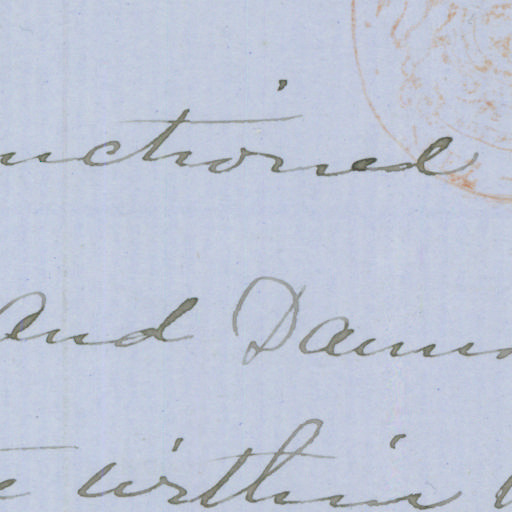 nctioned
and Dam
within